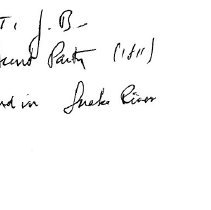 T. J. B.
Hunt Party (1811)
rd in Snake River